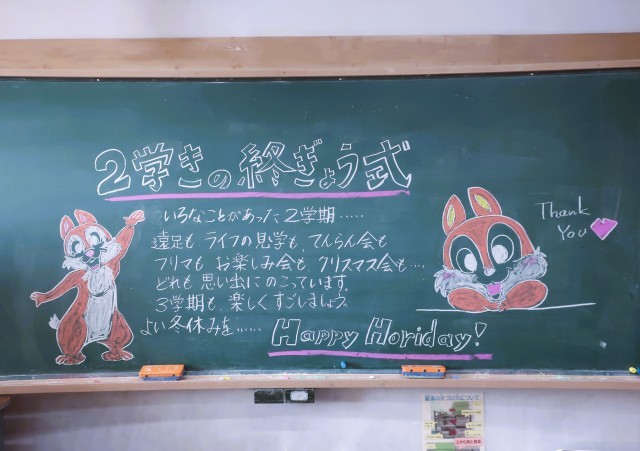 2学きの終ぎょう式
いろなことがあった2学期‥‥‥
遠足も ライフの見学も、てんらん会も
フリマも お楽しみ会も クリスマス会も‥‥
どれも 思い出にのこっています。
3学期も、楽しくすごしましょう。
よい冬休みを‥‥‥
Happy Horiday!
Thank
You